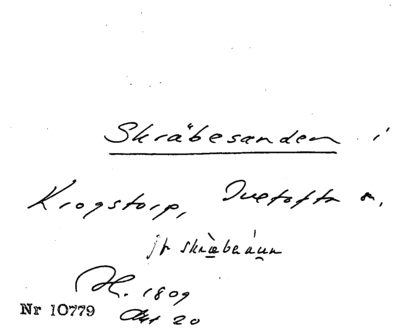 Skräbesanden i
Krogstorp, Ivetofta sn.
jfr skræbesáun
H. 1809
Akt 20
Nr 10779